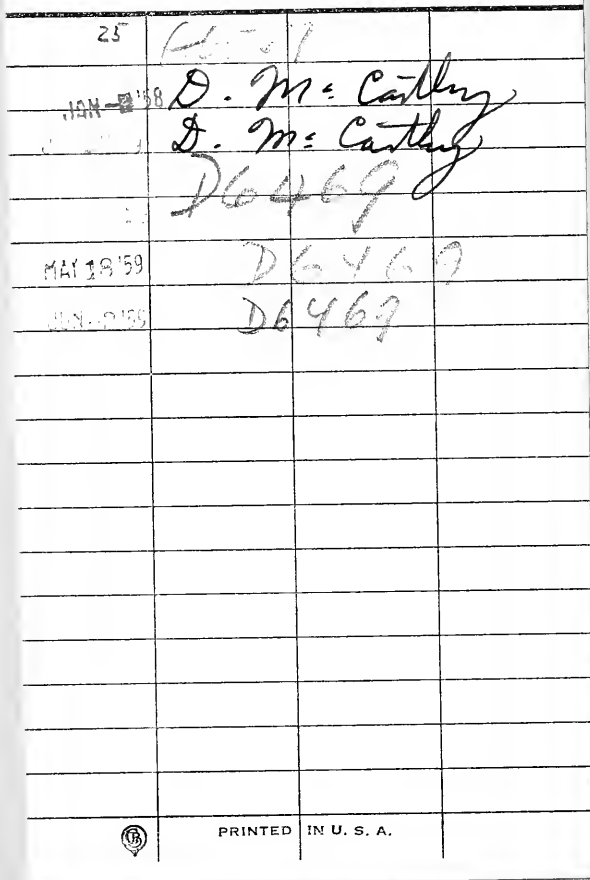 25
JAN 58 D. Mc Carthy
D. Mc Carthy
D6469
MAY 18 '59 D6469
D6469
PRINTED IN U. S. A.